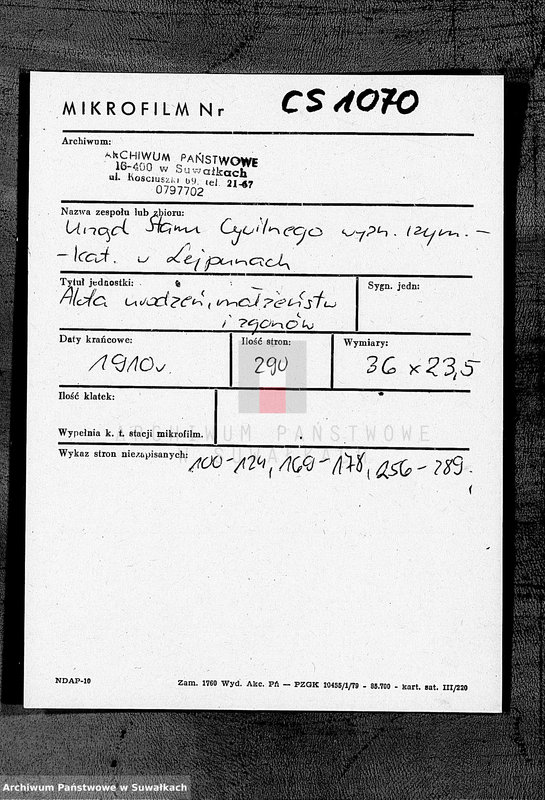 MIKROFILM Nr CS 1070
Archiwum:
ARCHIWUM PAŃSTWOWE
16-400 w Suwałkach
ul. Kościuszki 69, tel. 21-67
0797702
Nazwa zespołu lub zbioru:
Urząd Stanu Cywilnego wyzn. rzym.-
-kat. w Lejpunach
Tytuł jednostki:
Sygn. jedn:
Akta urodzeń, małżeństw
i zgonów
Daty krańcowe:
Ilość stron:
Wymiary:
1910r.
290
36 x 23,5
Ilość klatek:
Wypełnia k. t. stacji mikrofilm.
ARCHIWUM PAŃSTWOWE
SUWAŁKACH
Wykaz stron niezapisanych: 100-124, 169-178, 256-289.
NDAP-10
Zam. 1760 Wyd. Akc. Pń — PZGK 10455/1/79 - 85.700 - kart. sat. III/220
Archiwum Państwowe w Suwałkach